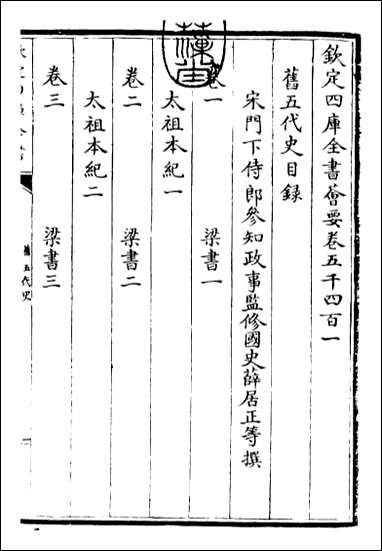 欽定四庫全書薈要卷五千四百一
舊五代史目録
宋門下侍郎參知政事監修國史薛居正等撰
卷一 梁書一
太祖本紀一
卷二 梁書二
太祖本紀二
卷三 梁書三
舊五代史